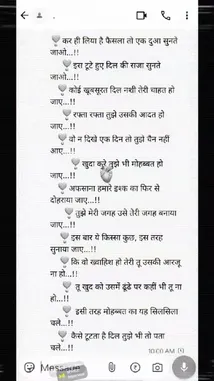 कर ही लिया है फैसला तो एक दुआ सुनते
जाओ...!!
इस टूटे हुए दिल की सजा सुनते
जाओ...!!
कोई खूबसूरत दिल नशी तेरी चाहत हो
जाए...!!
रफ्ता रफ्ता तुझे उसकी आदत हो
जाए...!!
वो न दिखे एक दिन तो तुझे चैन नहीं
आए...!!
खुदा करे तुझे भी मोहब्बत हो
जाए...!!
अफसाना हमारे इश्क का फिर से
दोहराया जाए...!!
तुझे मेरी जगह उसे तेरी जगह बनाया
जाए...!!
इस बार ये किस्सा कुछ, इस तरह
सुनाया जाए...!!
कि वो ख्वाहिश हो तेरी तू उसकी आरजू
ना हो...!!
तू खुद को उसमें ढूंढे पर कहीं भी तू ना
हो...!!
इसी तरह मोहब्बत का यह सिलसिला
चले...!!
कैसे टूटता है दिल तुझे भी तो पता
चले...!!
10:00 AM
Message